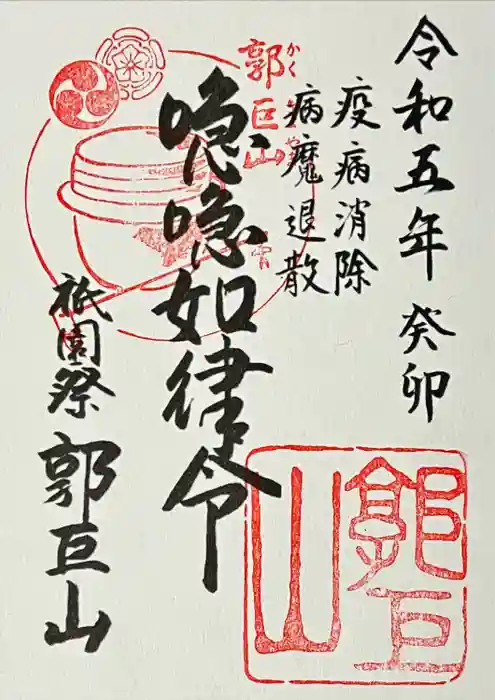 令和五年 癸卯
疫病消除
病魔退散
郭巨山
かく
喼喼如律令
祇園祭
郭巨山
郭巨山